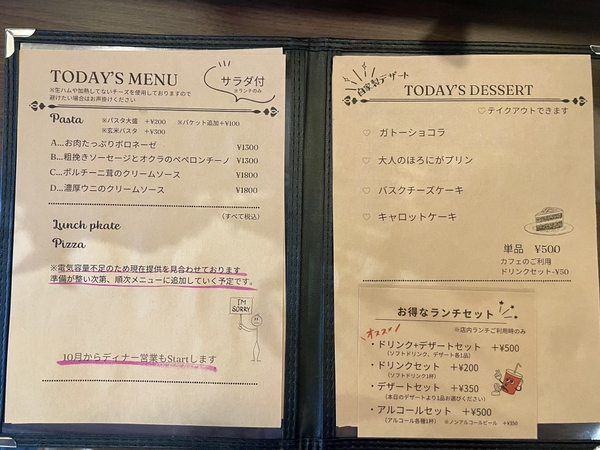 TODAY'S MENU
サラダ付
※ランチのみ
※生ハムや加熱してないチーズを使用しておりますので
避けたい場合はお声掛けください
Pasta ※パスタ大盛 +¥200 ※バケット追加+¥100
※玄米パスタ +¥300
A...お肉たっぷりボロネーゼ ¥1300
B...粗挽きソーセージとオクラのペペロンチーノ ¥1300
C...ポルチーニ茸のクリームソース ¥1800
D...濃厚ウニのクリームソース ¥1800
(すべて税込)
Lunch pkate
Pizza
※電気容量不足のため現在提供を見合わせております
準備が整い次第、順次メニューに追加していく予定です。
I'M
SORRY
10月からディナー営業もStartします
自家製デザート
TODAY'S DESSERT
♡テイクアウトできます
♡ ガトーショコラ
♡ 大人のほろにがプリン
♡ バスクチーズケーキ
♡ キャロットケーキ
単品 ¥500
カフェのご利用
ドリンクセット-¥50
お得なランチセット
※店内ランチご利用時のみ
オススメ
・ドリンク+デザートセット +¥500
(ソフトドリンク、デザート各1品)
・ドリンクセット +¥200
(ソフトドリンク1杯)
・デザートセット +¥350
(本日のデザートより1品お選びください)
・アルコールセット +¥500
(アルコール各種1杯) ※ノンアルコールビール +¥350